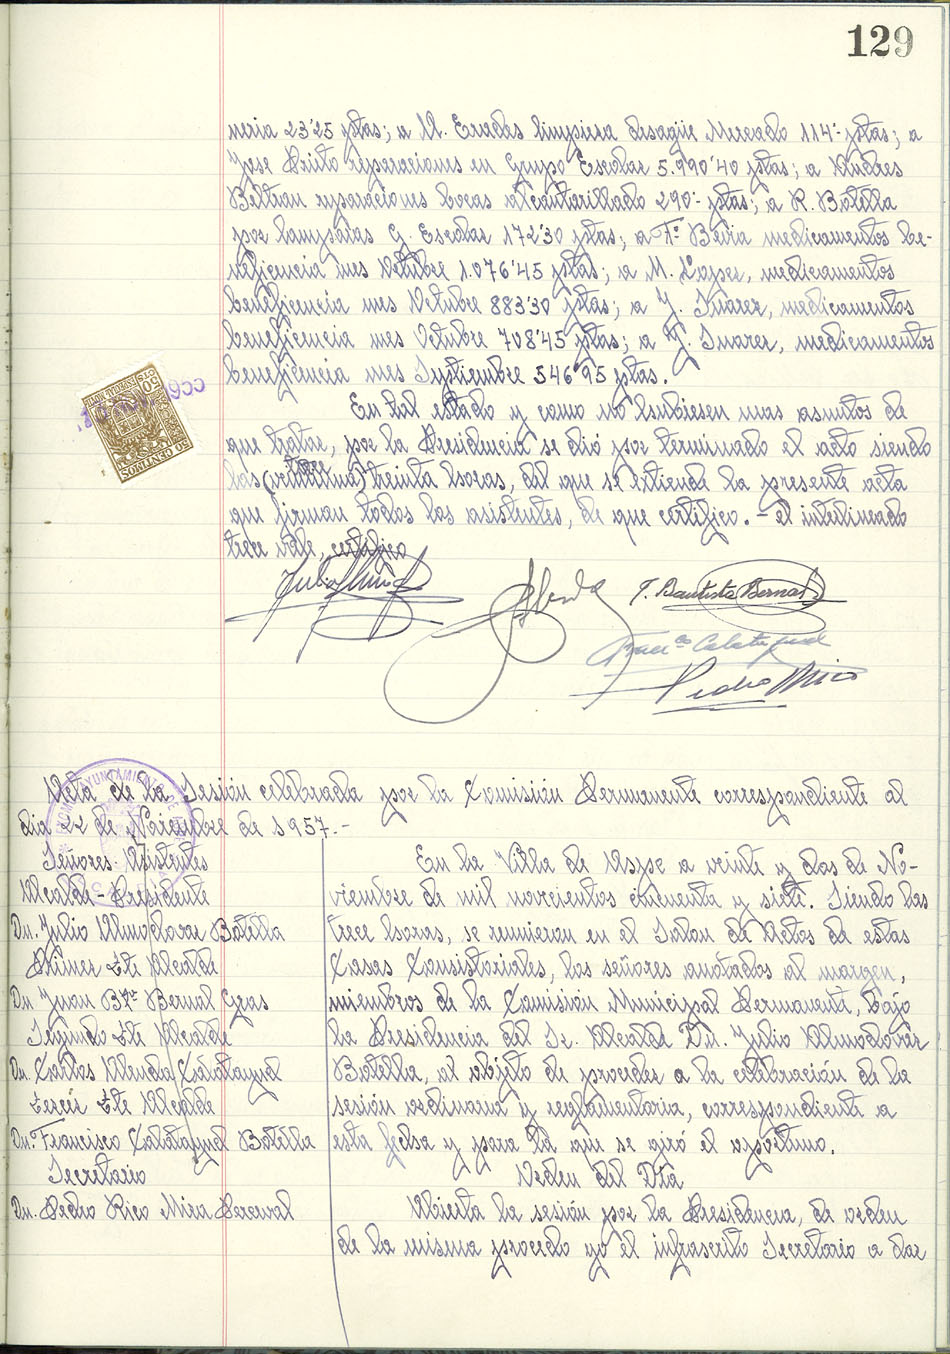 129
neria 23'25 ptas; a M. Eradas limpieza desagüe Mercado 114'- ptas; a
Jose Brito reparaciones en Grupo Escolar 5.990'40 ptas; a Andres
Beltran reparaciones bocas alcantarillado 290'- ptas; a R. Botella
por lamparas G. Escolar 172'30 ptas; a Fº Beviá medicamentos be-
neficencia mes Octubre 1.076'45 ptas; a M. Lopez, medicamentos
beneficencia mes Octubre 883'30 ptas; a J. Suarez, medicamentos
beneficencia mes Octubre 708'45 ptas; a J. Suarez, medicamentos
beneficencia mes Septiembre 546'95 ptas.
En tal estado y como no hubiesen mas asuntos de
que tratar, por la Presidencia se dió por terminado el acto siendo
trece
las (veintiuna) treinta horas, del que se extiende la presente acta
que firman todos los asistentes, de que certifico. - el interlineado
trece vale, certifico
50 CTS ESPECIAL MOVIL
50 CENTIMOS
J. Bautista Bernal
Franco Calatayud
Pedro Rico
AYUNTAMIENTO DE
Acta de la Sesión celebrada por la Comisión Permanente correspondiente al
dia 22 de Noviembre de 1957.-
Señores Asistentes
Alcalde-Presidente
Dn. Julio Almodovar Botella
Primer Tte Alcalde
Dn Juan Btª Bernal Gras
Segundo Tte Alcalde
Dn. Carlos Alenda Calatayud
Tercer Tte Alcalde
Dn. Francisco Calatayud Botella
Secretario
Dn. Pedro Rico Mira-Perceval
En la Villa de Aspe a veinte y dos de No-
viembre de mil novecientos cincuenta y siete. Siendo las
trece horas, se reunieron en el Salon de Actos de estas
Casas Consistoriales, los señores anotados al margen,
miembros de la Comisión Municipal Permanente, bajo
la Presidencia del Sr. Alcalde Dn. Julio Almodovar
Botella, al objeto de proceder a la celebración de la
sesión ordinaria y reglamentaria, correspondiente a
esta fecha y para la que se giró el oportuno.
Orden del Dia
Abierta la sesión por la Presidencia, de orden
de la misma procedo yo el infrascrito Secretario a dar